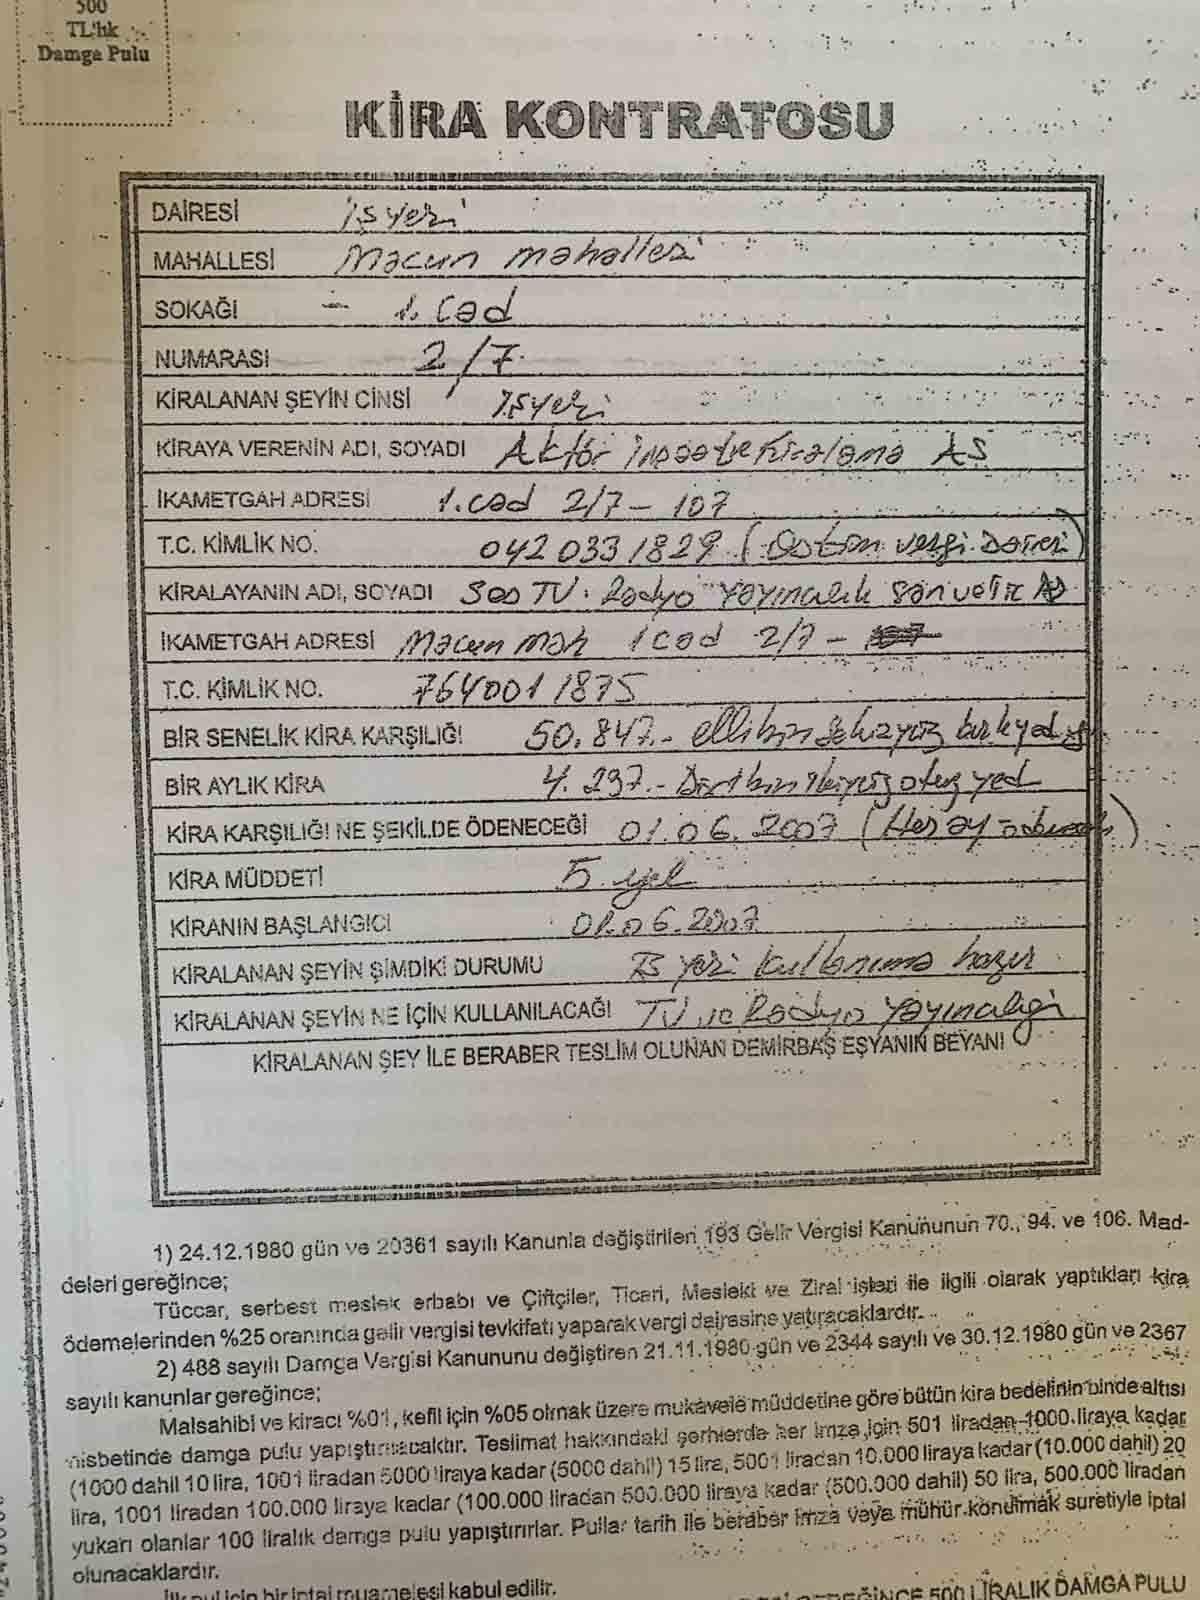 500
TL'lık
Damga Pulu
KİRA KONTRATOSU
DAİRESİ işyeri
MAHALLESİ Macun mahallesi
SOKAĞI - 1. Cad
NUMARASI 2/7
KİRALANAN ŞEYİN CİNSİ işyeri
KİRAYA VERENİN ADI, SOYADI Aktör inşaat ve Kiralama AŞ
İKAMETGAH ADRESİ 1. cad 2/7 - 107
T.C. KİMLİK NO. 042 033 1829 (Ostim vergi Dairesi)
KİRALAYANIN ADI, SOYADI Ses TV. Radyo Yayıncılık San ve Tic AŞ
İKAMETGAH ADRESİ Macun mah 1 cad 2/7 -
T.C. KİMLİK NO. 7640011875
BİR SENELİK KİRA KARŞILIĞI 50.847.- ellibinsekizyüz kırkyedi
BİR AYLIK KİRA 4.237.- Dörtbinikiyüzotuzyedi
KİRA KARŞILIĞI NE ŞEKİLDE ÖDENECEĞİ 01.06.2007 (Her ay
KİRA MÜDDETİ 5 yıl
KİRANIN BAŞLANGICI 01.06.2007
KİRALANAN ŞEYİN ŞİMDİKİ DURUMU İş yeri kullanıma hazır
KİRALANAN ŞEYİN NE İÇİN KULLANILACAĞI TV ve Radyo Yayıncılığı
KİRALANAN ŞEY İLE BERABER TESLİM OLUNAN DEMİRBAŞ EŞYANIN BEYANI
1) 24.12.1980 gün ve 20361 sayılı Kanunla değiştirilen 193 Gelir Vergisi Kanununun 70., 94. ve 106. Mad-
deleri gereğince;
Tüccar, serbest meslek erbabı ve Çiftçiler, Ticari, Mesleki ve Zirai işleri ile ilgili olarak yaptıkları kira
ödemelerinden %25 oranında gelir vergisi tevkifatı yaparak vergi dairesine yatıracaklardır.
2) 488 sayılı Damga Vergisi Kanununu değiştiren 21.11.1980 gün ve 2344 sayılı ve 30.12.1980 gün ve 2367
sayılı kanunlar gereğince;
Malsahibi ve kiracı %01, kefil için %05 olmak üzere mukavele müddetine göre bütün kira bedelinin binde altısı
nisbetinde damga pulu yapıştırılacaktır. Teslimat hakkındaki şerhlerde her imza için 501 liradan 1000 liraya kadar
(1000 dahil 10 lira, 1001 liradan 5000 liraya kadar (5000 dahil) 15 lira, 5001 liradan 10.000 liraya kadar (10.000 dahil) 20
lira, 1001 liradan 100.000 liraya kadar (100.000 liradan 500.000 liraya kadar (500.000 dahil) 50 lira, 500.000 liradan
yukarı olanlar 100 liralık damga pulu yapıştırırlar. Pullar tarih ile beraber imza veya mühür konulmak suretiyle iptal
olunacaklardır.
İlk pul için bir iptal muamelesi kabul edilir.
GEREĞİNCE 500 LİRALIK DAMGA PULU